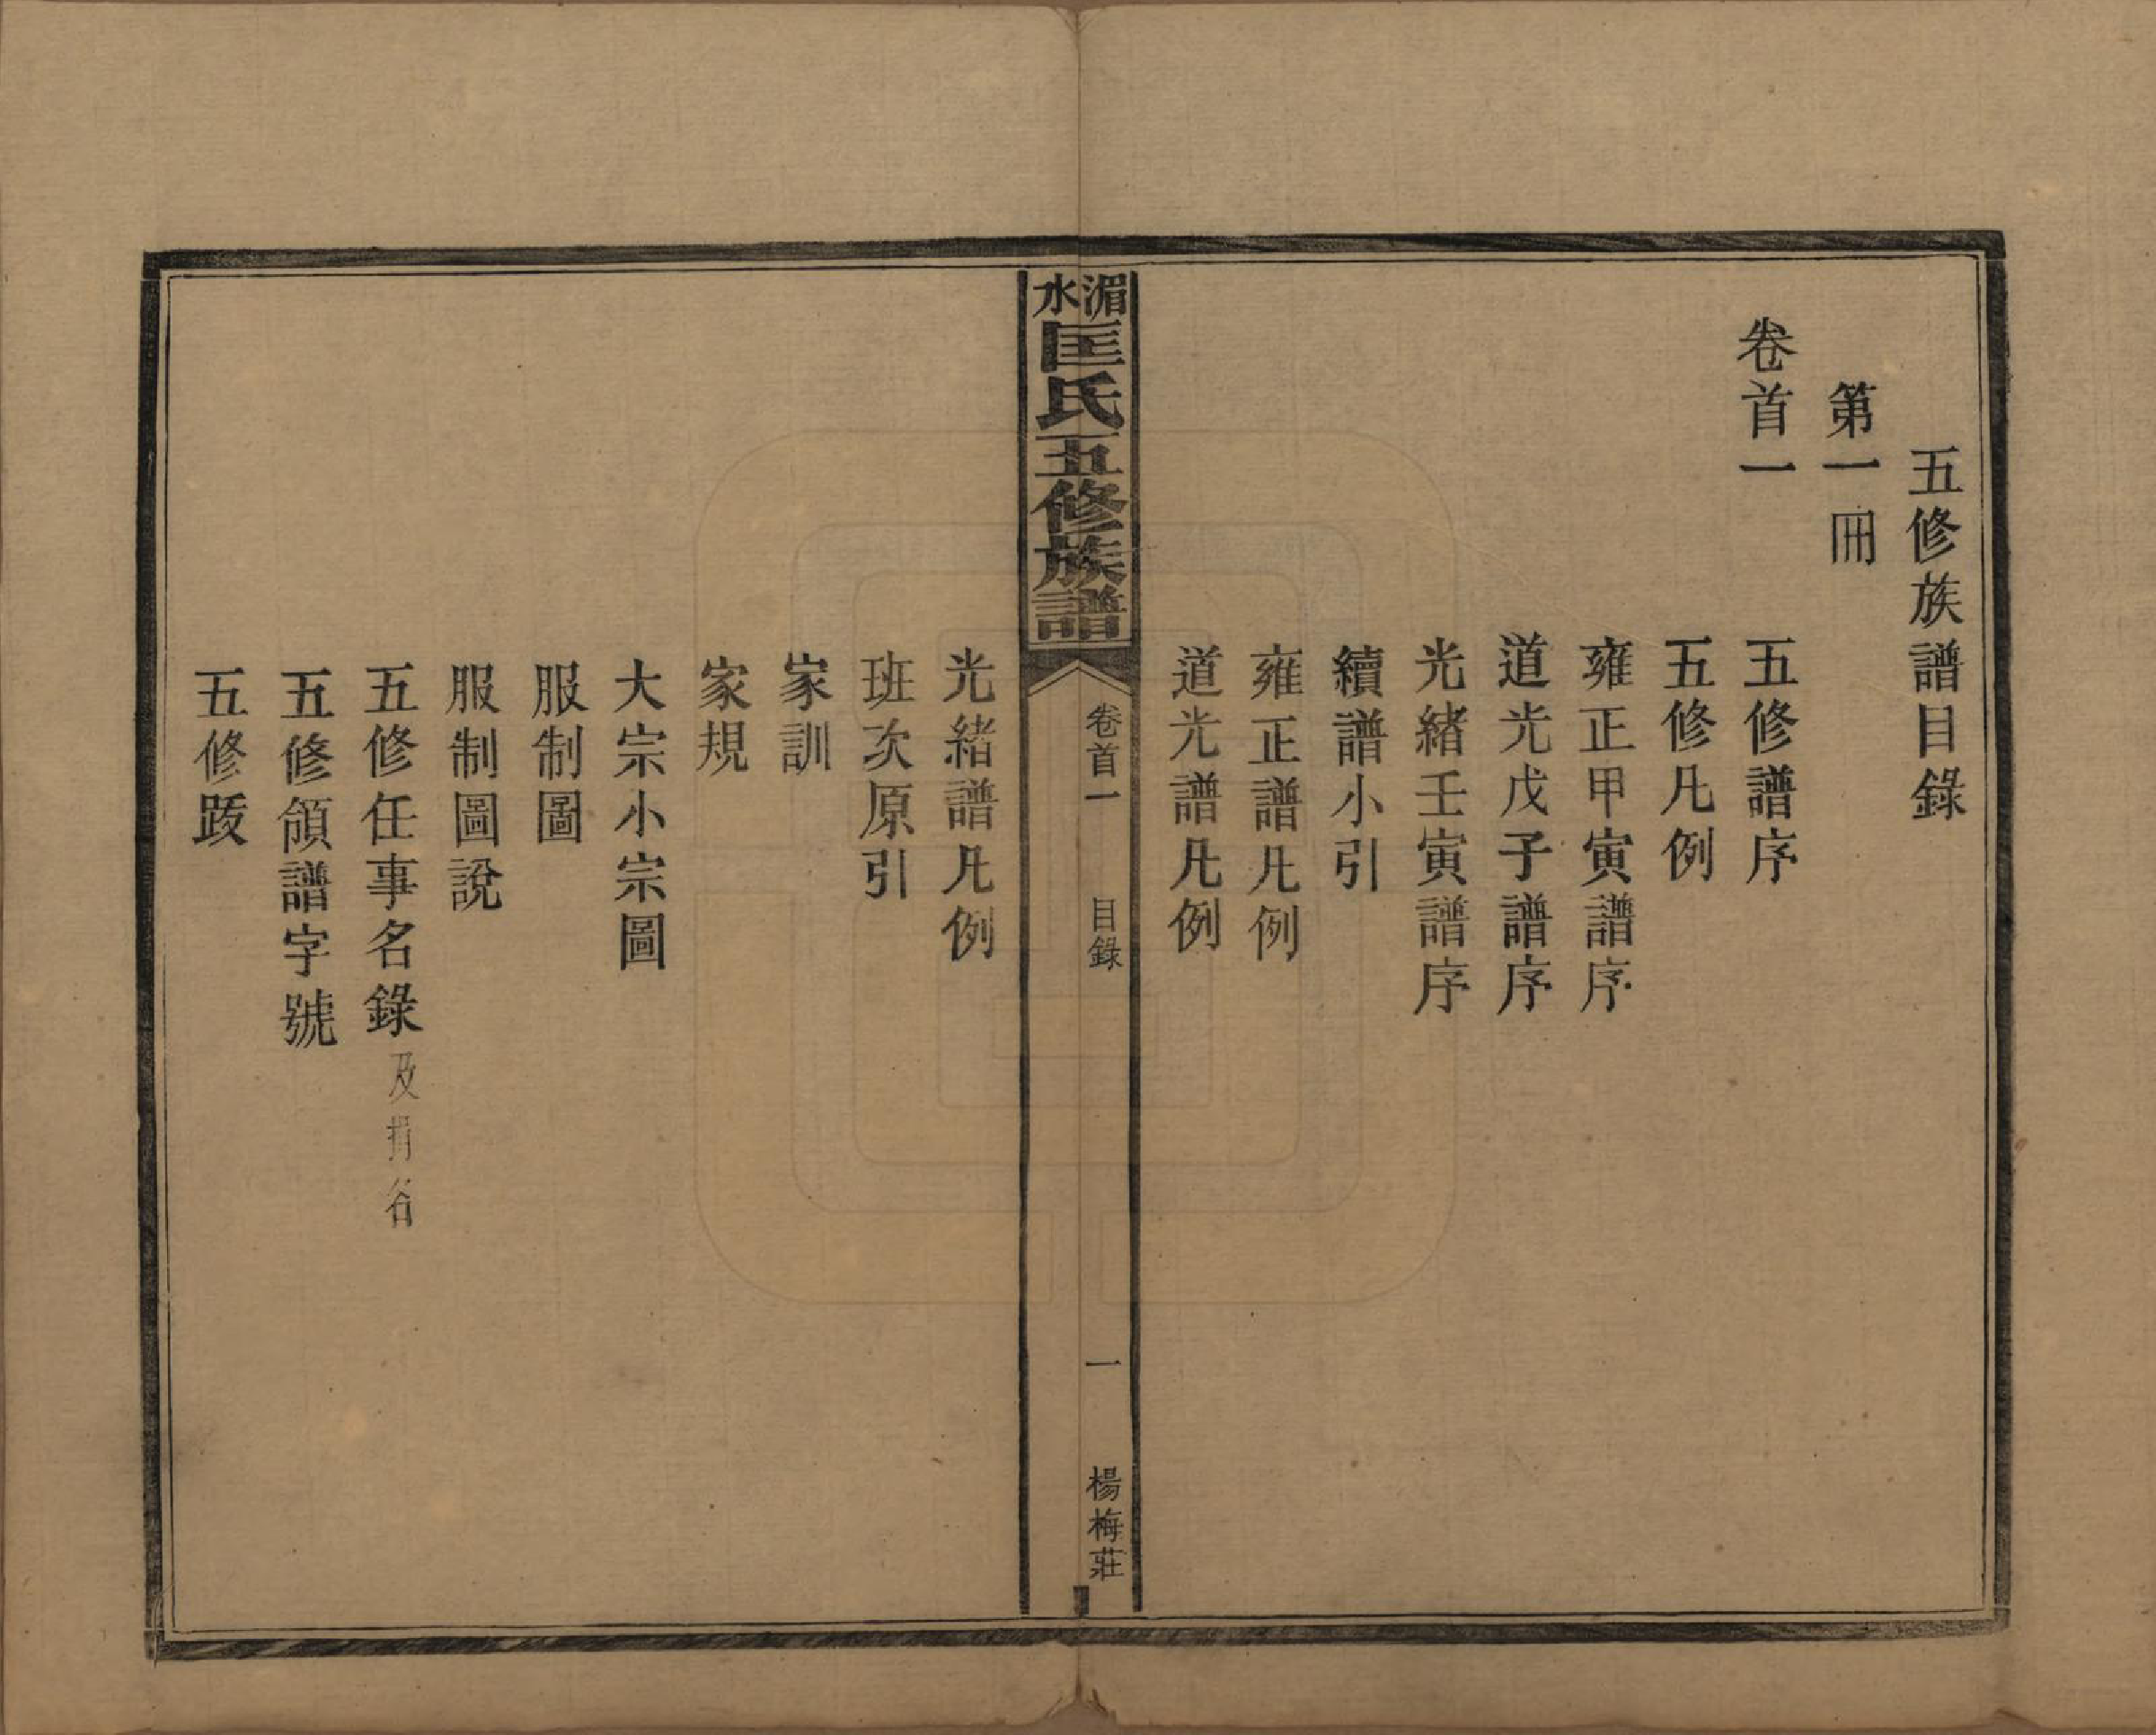 五修族譜目錄
第一冊
卷首一
五修譜序
五修凡例
雍正甲寅譜序
道光戊子譜序
光緒壬寅譜序
續譜小引
雍正譜凡例
道光譜凡例
湄水匡氏五修族譜
卷首一
目錄
一
楊梅莊
光緒譜凡例
班次原引
家訓
家規
大宗小宗圖
服制圖
服制圖說
五修任事名錄及捐谷
五修領譜字號
五修跋